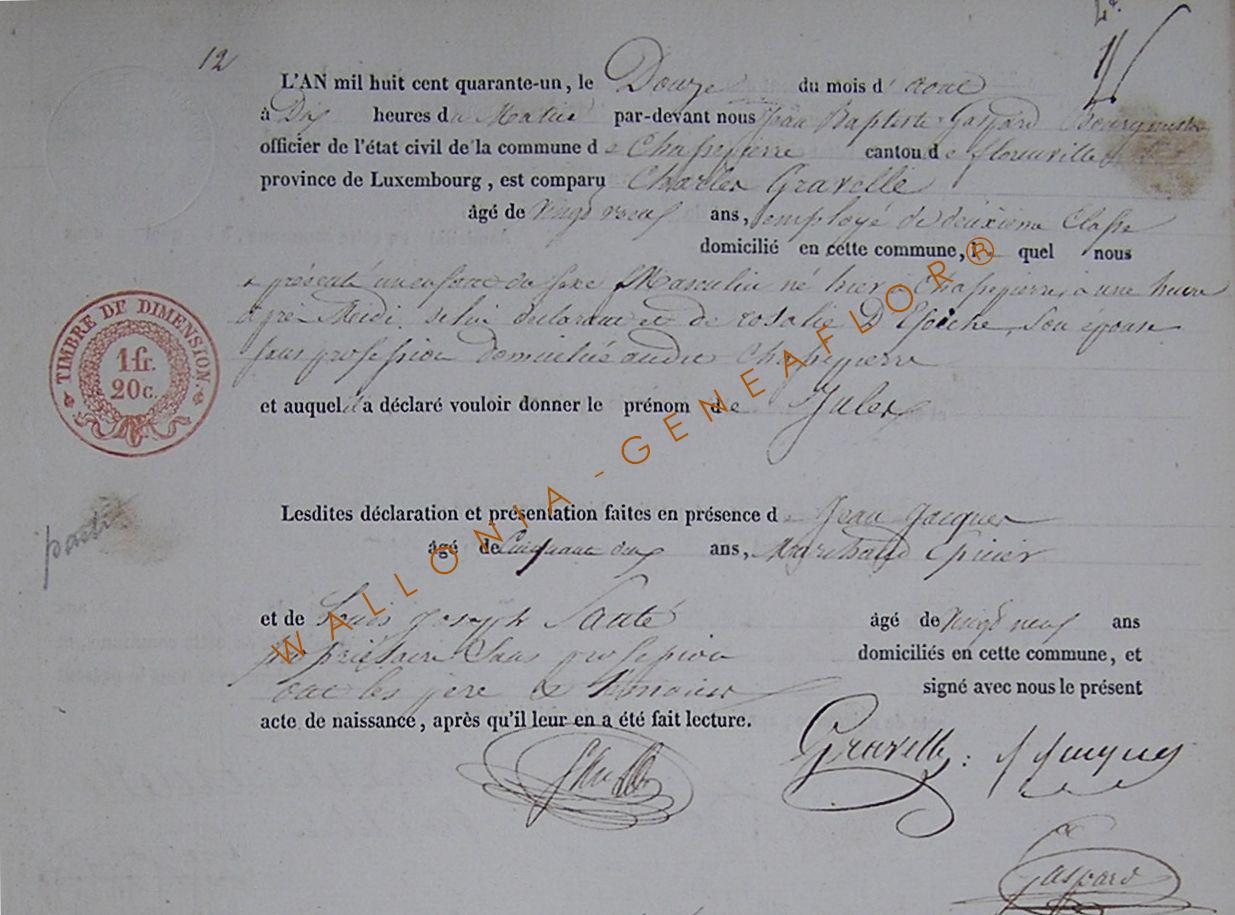 12
L'AN mil huit cent quarante-un, le Douze du mois d'aout
à Dix heures du Matin par-devant nous Jean Baptiste Gaspard Bourgmestre
officier de l'état civil de la commune de Chassepierre canton de florenville
province de Luxembourg, est comparu Charles Gravelle
âgé de Vingt neuf ans, employé de deuxieme Classe
domicilié en cette commune, le quel nous
a présenté un enfant du sexe Masculin né hier a Chassepierre, a une heure
apré Midi. de lui declarant et de rosalie D'Esoiche, son épouse
sans profession domiciliée audit Chassepierre
et auquel il a déclaré vouloir donner le prénom de Jules
Lesdites déclaration et présentation faites en présence de Jean Jacques
âgé de Cinquante deux ans, Marchand Epicier
et de Louis Joseph Santé âgé de Vingt neuf ans
propriétaire Sans profession domiciliés en cette commune, et
ont les pere et temoins signé avec nous le présent
acte de naissance, après qu'il leur en a été fait lecture.
Gravelle. J Jacques
Gaspard
TIMBRE DE DIMENSION.
1 fr.
20 c.
WALLONIA - GENEAFLOR®